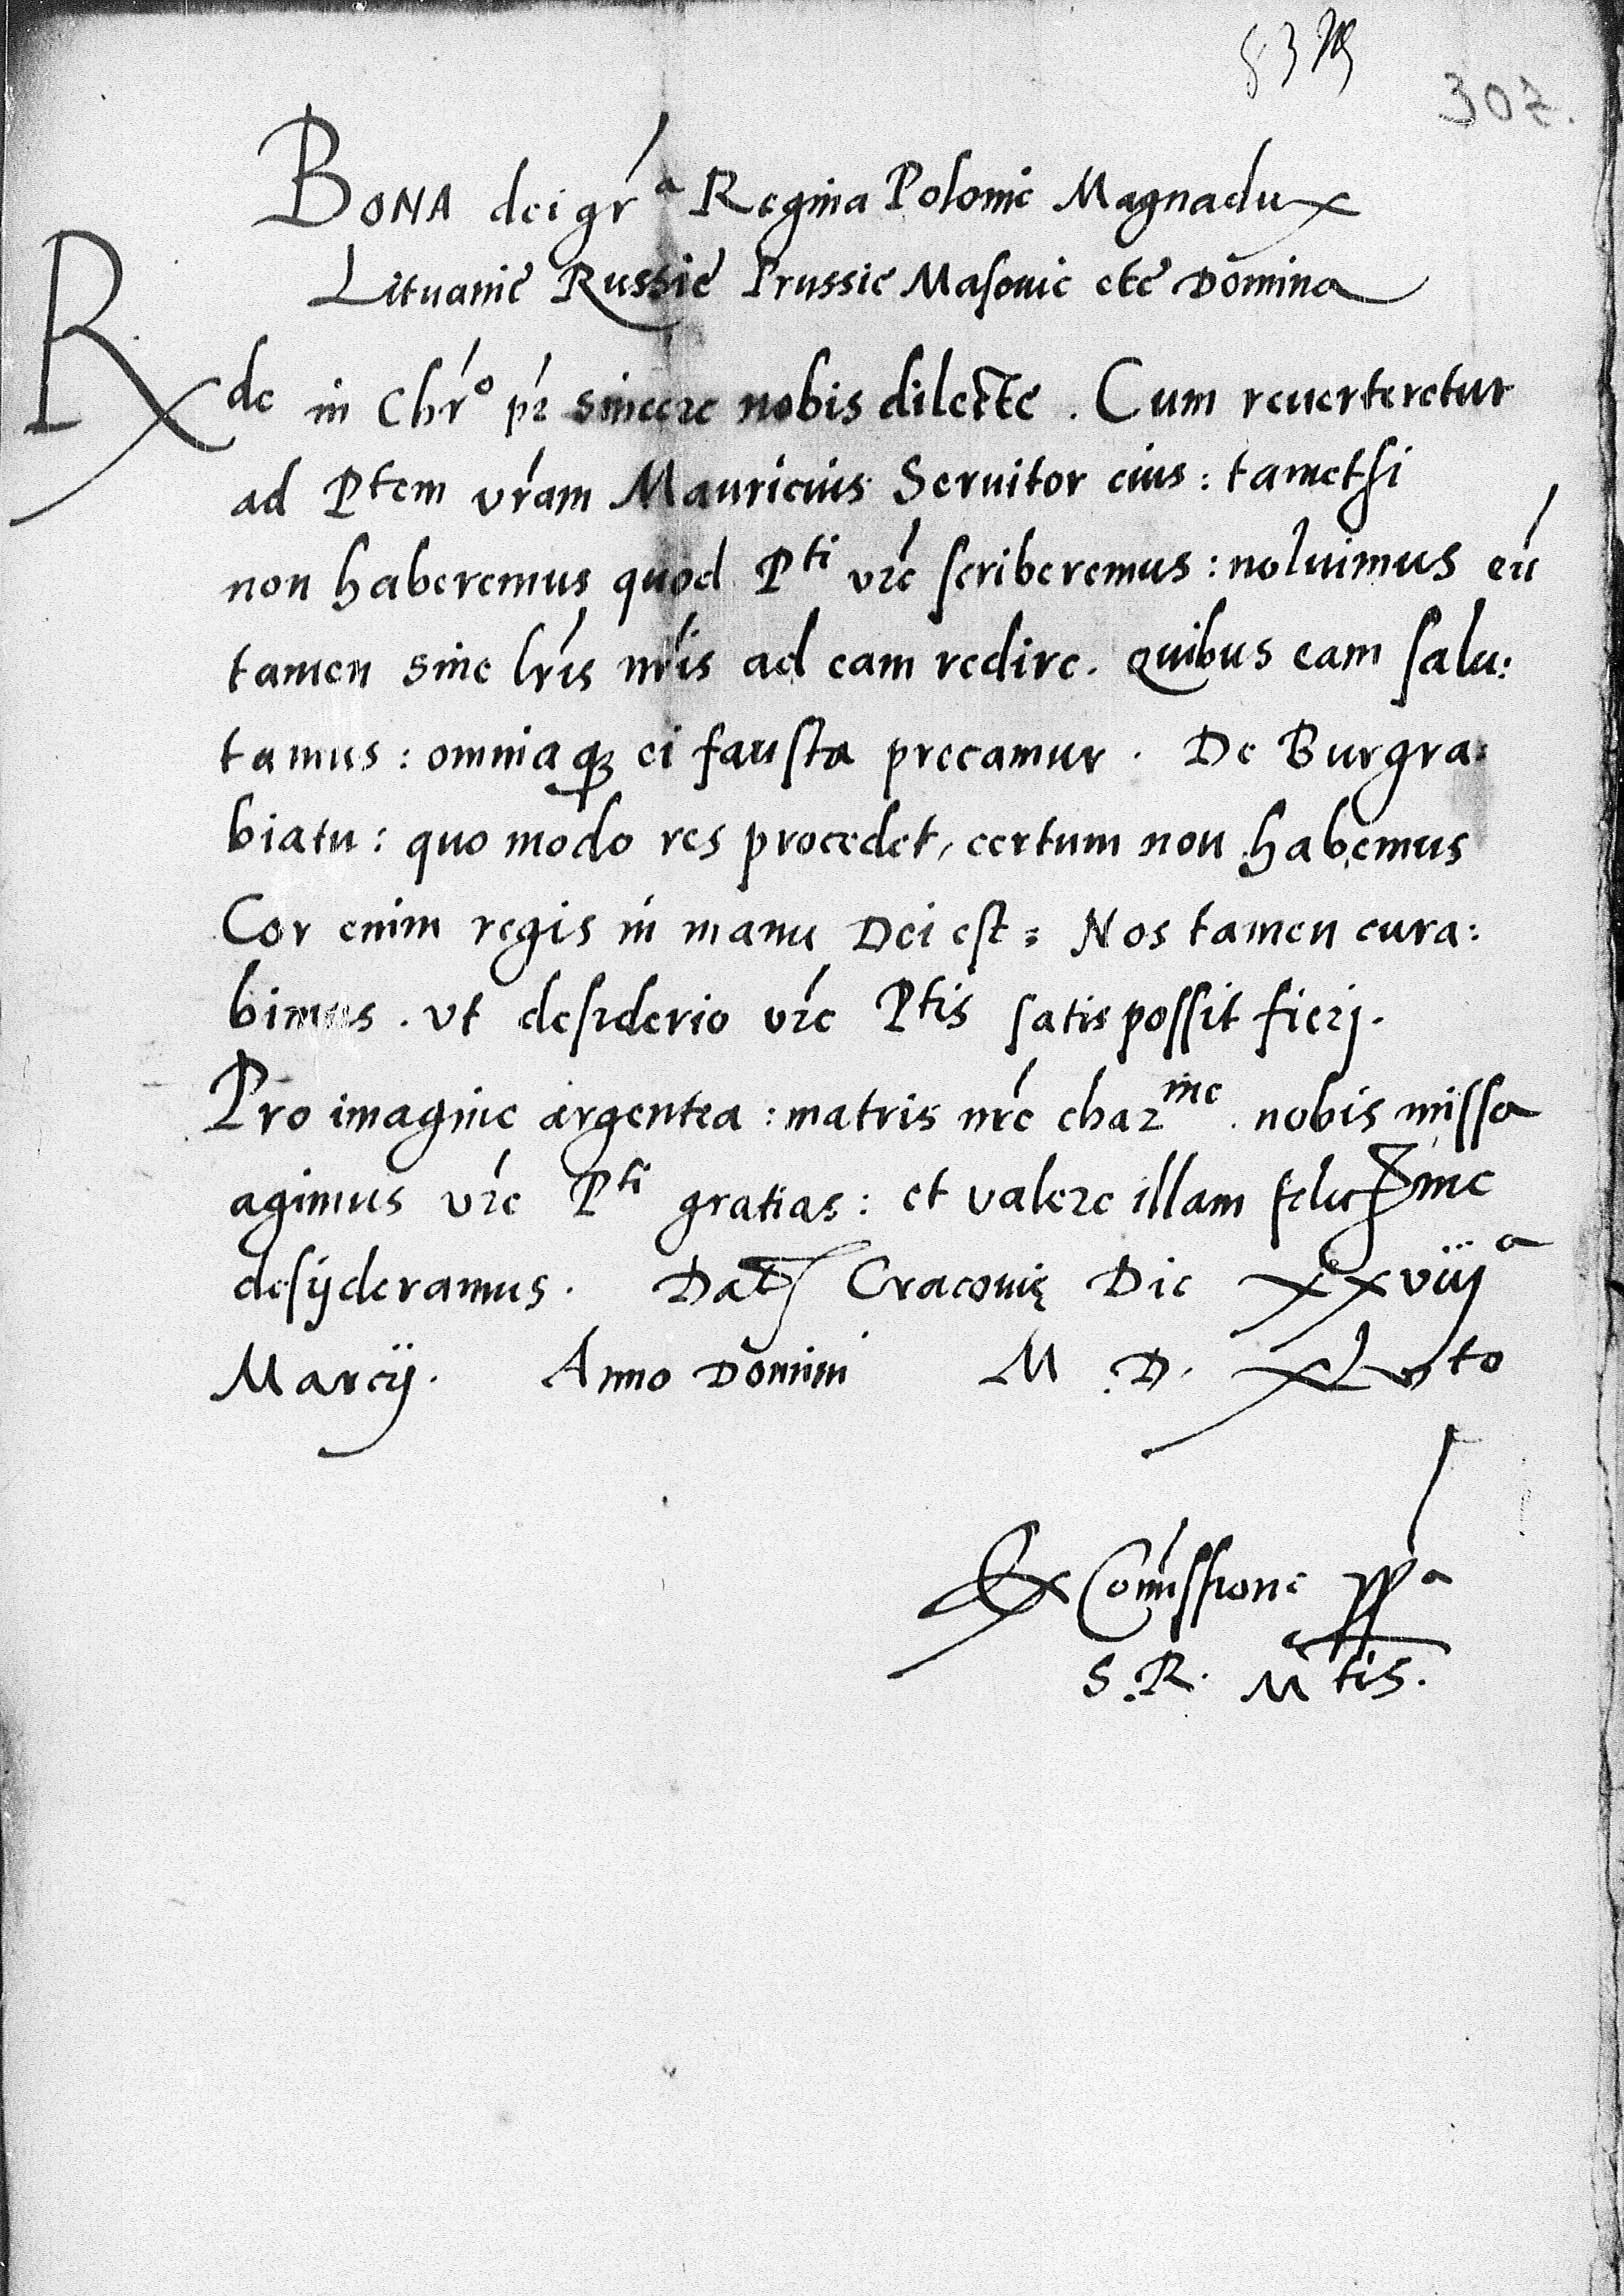 307.
BONA dei gr̃a Regina Polonie Magnadux
Lituanie Russie Prussie Masouie etc̃ Dömina
Rde in Chr̃o pr̃ sincere nobis dilecte. Cum reuerteretur
ad Ptem vr̃am Mauricius Seruitor eius: tametsi
non haberemus quod Pti vr̃e scriberemus: noluimus eũ
tamen sine lr̃is nr̃is ad eam redire. Quibus eam salu:
tamus: omniaqꝫ ei fausta precamur. De Burgra:
biatu: quo modo res procedet, certum non habemus
Cor enim regis in manu Dei est: Nos tamen cura:
bimus. vt desiderio vr̃e Ptis satis possit fierj.
Pro imagine argentea: matris nr̃e charme. nobis missa
agimus vr̃e Pti gratias: et valere illam felicme
desyderamus. Dat Cracouię Die xxviijª
Marcij. Anno Dömini M. D. XLvto
Ex Com̃issione ppª
S. R. Mtis.